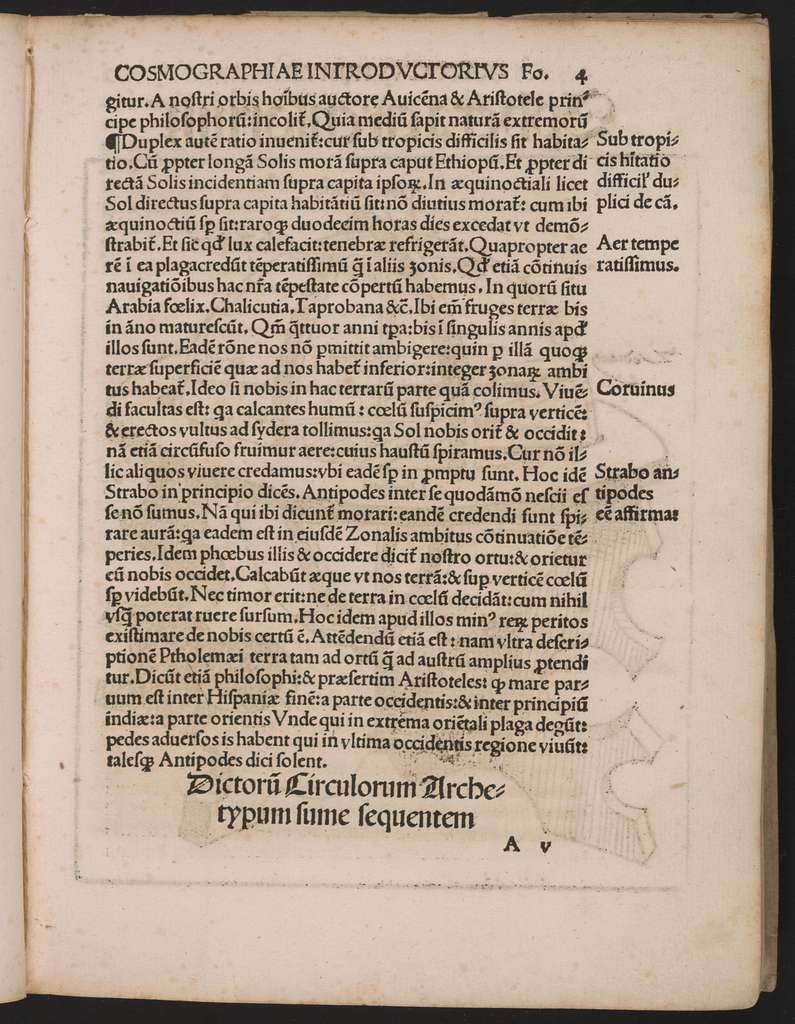 COSMOGRAPHIAE INTRODVCTORIVS Fo. 4
gitur. A noſtri orbis hoībus auctore Auicēna & Ariſtotele prinꝰ
cipe philoſophorū: incolit̄. Quia mediū ſapit naturā extremorū
¶Duplex autē ratio inuenit̄: cur ſub tropicis difficilis ſit habita⸗
tio. Cū ꝓpter longā Solis morā ſupra caput Ethiopū. Et ꝓpter di
rectā Solis incidentiam ſupra capita ipſoꝝ. In æquinoctiali licet
Sol directus ſupra capita habitātiū ſit: nō diutius morat̄: cum ibi
æquinoctiū ſp̄ ſit: raroqꝫ duodecim horas dies excedat vt demō⸗
ſtrabit̄. Et ſic qd̛ lux calefacit: tenebræ refrigerāt. Quapropter ae
rē ī ea plagacredūt tēperatiſſimū q̄ ī aliis ʒonis. Qd̛ etiā cōtinuis
nauigatiōibus hac nr̄a tēpeſtate cōpertū habemus. In quorū ſitu
Arabia fœlix. Chalicutia. Taprobana &c̄. Ibi em̄ fruges terræ bis
in āno matureſcūt. Qm̄ q̄ttuor anni tp̄a: bis ī ſingulis annis apd̛
illos ſunt. Eadē rōne nos nō ꝑmittit ambigere: quin ꝑ illā quoqꝫ
terræ ſuperficiē quæ ad nos habet̄ inferior: integer ʒonaꝝ ambi
tus habeat̄. Ideo ſi nobis in hac terrarū parte quā colimus. Viuē⸗
di facultas eſt: q̄a calcantes humū: cœlū ſuſpicimꝰ ſupra verticē:
& erectos vultus ad ſydera tollimus: q̄a Sol nobis orit̄ & occidit:
nā etiā circūfuſo fruimur aere: cuius hauſtū ſpiramus. Cur nō il⸗
lic aliquos viuere credamus: vbi eadē ſp̄ in ꝓmptu ſunt. Hoc idē
Strabo in principio dicēs. Antipodes inter ſe quodāmō neſcii eſ
ſe nō ſumus. Nā qui ibi dicunt̄ morari: eandē credendi ſunt ſpi⸗
rare aurā: q̄a eadem eſt in eiuſdē Zonalis ambitus cōtinuatiōe tē⸗
peries. Idem phœbus illis & occidere dicit̄ noſtro ortu: & orietur
cū nobis occidet. Calcabūt æque vt nos terrā: & ſup verticē cœlū
ſp̄ videbūt. Nec timor erit: ne de terra in cœlū decidāt: cum nihil
vſq̄ poterat ruere ſurſum. Hoc idem apud illos minꝰ reꝝ peritos
exiſtimare de nobis certū ē. Attēdendū etiā eſt: nam vltra deſcri⸗
ptionē Ptholemæi terra tam ad ortū q̄ ad auſtrū amplius ꝓtendi
tur. Dicūt etiā philoſophi: & præſertim Ariſtoteles: ꝙ mare par⸗
uum eſt inter Hiſpaniæ finē: a parte occidentis: & inter principiū
indiæ: a parte orientis Vnde qui in extrema oriētali plaga degūt:
pedes aduerſos is habent qui in vltima occidentis regione viuūt:
taleſqꝫ Antipodes dici ſolent.
Dictorū Circulorum Arche⸗
typum ſume ſequentem
A v
Sub tropi⸗
cis hītatio
difficil' du⸗
plici de cā.
Aer tempe
ratiſſimus.
Coruinus
Strabo an⸗
tipodes
eē affirmat